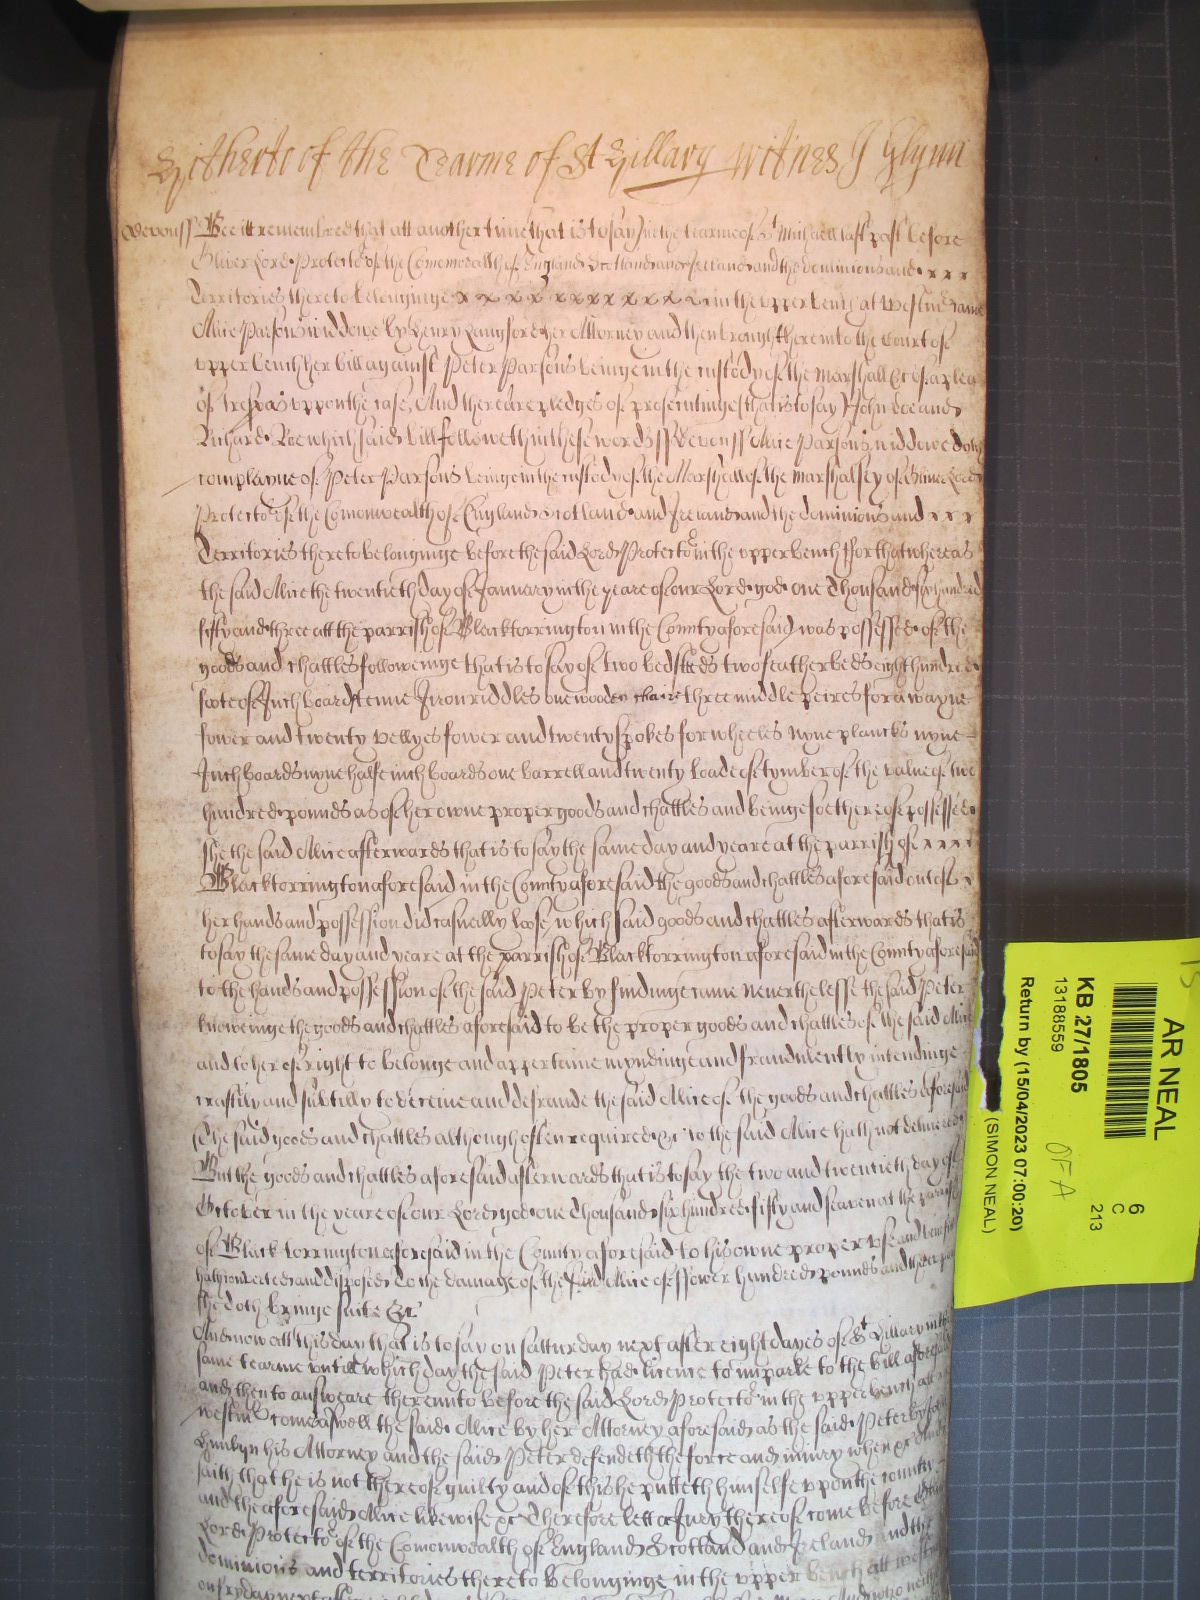 Hitherto of the Tearme of St Hillary Witnes J Glynn
Devonss Bee itt remembred that att another time that is to say in the tearme of St Michaell last past before
Oliver Lord Protector of the Comonwealth of England Scotland and Ireland and the dominions and
Territories thereto belonginge in the upper bench at Westmr came
Alice Parsons widdowe by Henry Langford her Attorney and then brought there into the Court of
upper bench her bill against Peter Parsons beinge in the custody of the Marshall &c of a plea
of trespas uppon the case, And there are pledges of prosecutinge (that is to say) John Doe and
Richard Roe which said bill followeth in these words ss Devonss Alice Parsons widdowe doth
complayne of Peter Parsons beinge in the custody of the Marshall of the Marshalsey of Oliver Lord
Protector of the Comonwealth of England Scotland and Ireland and the dominions and
Territories thereto belonginge before the said Lord Protector in the upper bench ffor that whereas
the said Alice the twentieth day of January in the yeare of our Lord god one Thousand six hundred
fifty and three att the parrish of Blacktorrington in the County aforesaid was possessed of the
goods and chattles followeinge that is to say of two bedsteeds two featherbeds eight hundred
foote of Inch board tenne Iron riddles one wooden chaire three middle peices for a wayne
fower and twenty vellyes fower and twenty spokes for wheeles nyne plancks nyne
Inch boards nyne halfe inch boards one barrell and twenty loade of tymber of the value of two
hundred pounds as of her owne proper goods and chattles and beinge soe thereof possessed
she the said Alice afterwards that is to say the same day and yeare at the parrish of
Blacktorrington aforesaid in the County aforesaid the goods and chattles aforesaid out of
her hands and possession did casually loose, which said goods and chattles afterwards that is
to say the same day and yeare at the parrish of Blacktorrington aforesaid in the County aforesaid
to the hands and possession of the said Peter by findinge came Neverthelesse the said Peter
knoweinge the goods and chattles aforesaid to be the proper goods and chattles of the said Alice
and to her of right to belonge and appertaine myndinge and fraudulently intendinge
craftily and subtilly to deceive and defraude the said Alice of the goods and chattles aforesaid
The said goods and chattles although often required &c to the said Alice hath not delivered
But the goods and chattles aforesaid afterwards that is to say the two and twentieth day of
October in the yeare of our Lord god one Thousand six hundred fifty and seaven at the parrish
of Blacktorrington aforesaid in the County aforesaid to his owne proper use and benefit
hath converted and disposed To the damage of the said Alice of ffower hundred pounds and thereupon
she doth bringe suite &c
And now att this day that is to say on Satturday next after eight dayes of St Hillary in this
same tearme untill which day the said Peter had licence to imparle to the bill aforesaid
and then to answeare thereunto before the said Lord Protector in the upper bench att
Westmr comes aswell the said Alice by her Attorney aforesaid as the said Peter by
his Attorney and the said Peter defendeth the force and iniury when &c And
saith that he is not thereof guilty and of this he putteth himselfe uppon the country
and the aforesaid Alice likewise &c Therefore lett a Jury thereof come before the
Lord Protector of the Comonwealth of England Scotland and Ireland and the
dominions and territories thereto belonginge in the upper bench att Westmr
on fryday next after
AR NEAL
KB 27/1805
13188559
Return by (15/04/2023 07:00:20)
(SIMON NEAL)
6
C
213
OFA